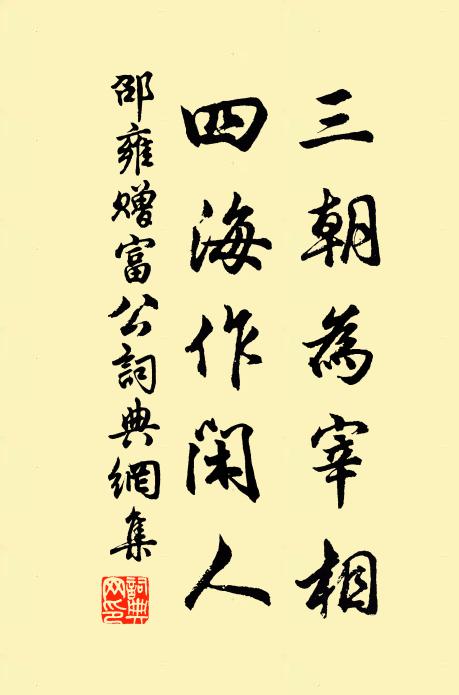 三朝為宰相
四海作閑人
邵雍贈富公詞典網集
詞典
网印